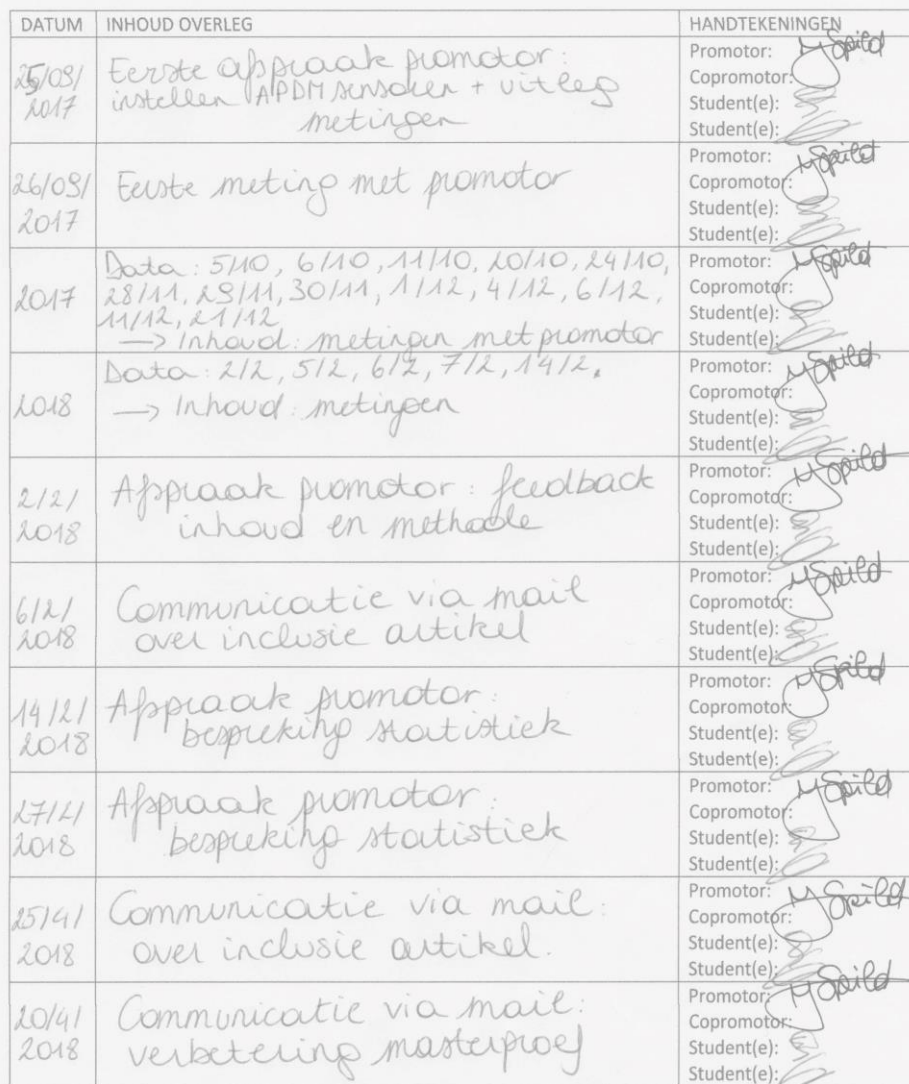 DATUM INHOUD OVERLEG HANDTEKENINGEN
25/09/2017 Eerste afspraak promotor:
instellen APDM sensoren + uitleg
metingen
Promotor:
Copromotor:
Student(e):
Student(e):
26/09/2017 Eerste meting met promotor
Promotor:
Copromotor:
Student(e):
Student(e):
2017 Data: 5/10, 6/10, 11/10, 20/10, 24/10,
28/11, 29/11, 30/11, 1/12, 4/12, 6/12,
11/12, 21/12
—> Inhoud: metingen met promotor
Promotor:
Copromotor:
Student(e):
Student(e):
2018 Data: 2/2, 5/2, 6/2, 7/2, 14/2.
—> Inhoud: metingen
Promotor:
Copromotor:
Student(e):
Student(e):
2/2/2018 Afspraak promotor: feedback
inhoud en methode
Promotor:
Copromotor:
Student(e):
Student(e):
6/2/2018 Communicatie via mail
over inclusie artikel
Promotor:
Copromotor:
Student(e):
Student(e):
14/2/2018 Afspraak promotor:
bespreking statistiek
Promotor:
Copromotor:
Student(e):
Student(e):
27/2/2018 Afspraak promotor:
bespreking statistiek
Promotor:
Copromotor:
Student(e):
Student(e):
25/4/2018 Communicatie via mail:
over inclusie artikel.
Promotor:
Copromotor:
Student(e):
Student(e):
20/4/2018 Communicatie via mail:
verbetering masterproef
Promotor:
Copromotor:
Student(e):
Student(e):